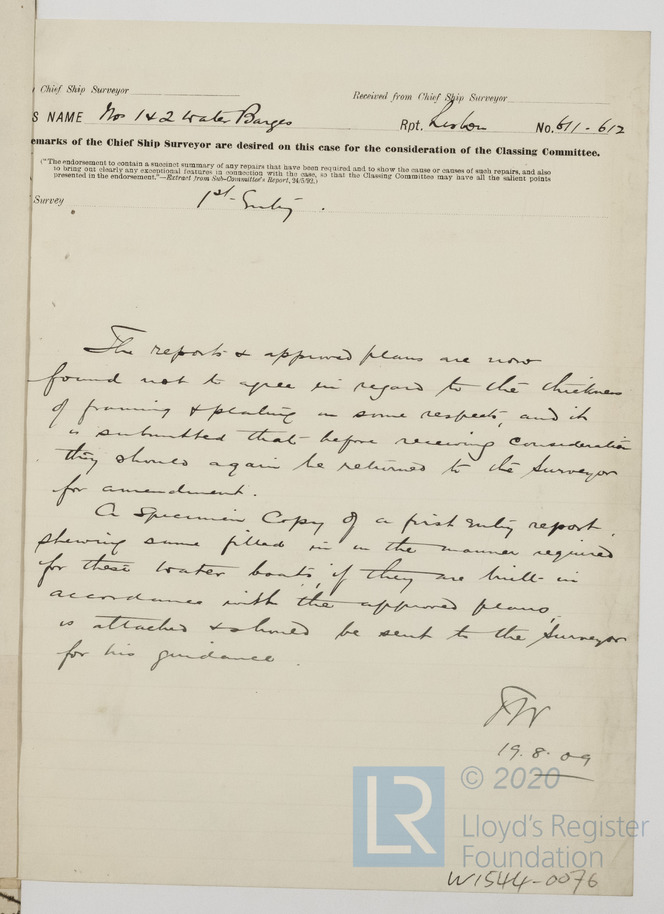 Chief Ship Surveyor
Received from Chief Ship Surveyor
S NAME Nos 1 & 2 Water Barges Rpt. Lisbon No. 611 - 612
emarks of the Chief Ship Surveyor are desired on this case for the consideration of the Classing Committee.
("The endorsement to contain a succinct summary of any repairs that have been required and to show the cause or causes of such repairs, and also
to bring out clearly any exceptional features in connection with the case, so that the Classing Committee may have all the salient points
presented in the endorsement."—Extract from Sub-Committee's Report, 24/5/92.)
Survey 1st Entry.
The reports & approved plans are now
found not to agree in regard to the thickness
of framing & plating in some respects, and it
is submitted that before receiving consideration
they should again be returned to the Surveyor
for amendment.
A Specimen Copy of a first Entry report,
shewing same filled in in the manner required
for these water boats, if they are built in
accordance with the approved plans,
is attached & should be sent to the Surveyor
for his guidance.
19.8.09
LR © 2020
Lloyd's Register
Foundation
W1544-0076